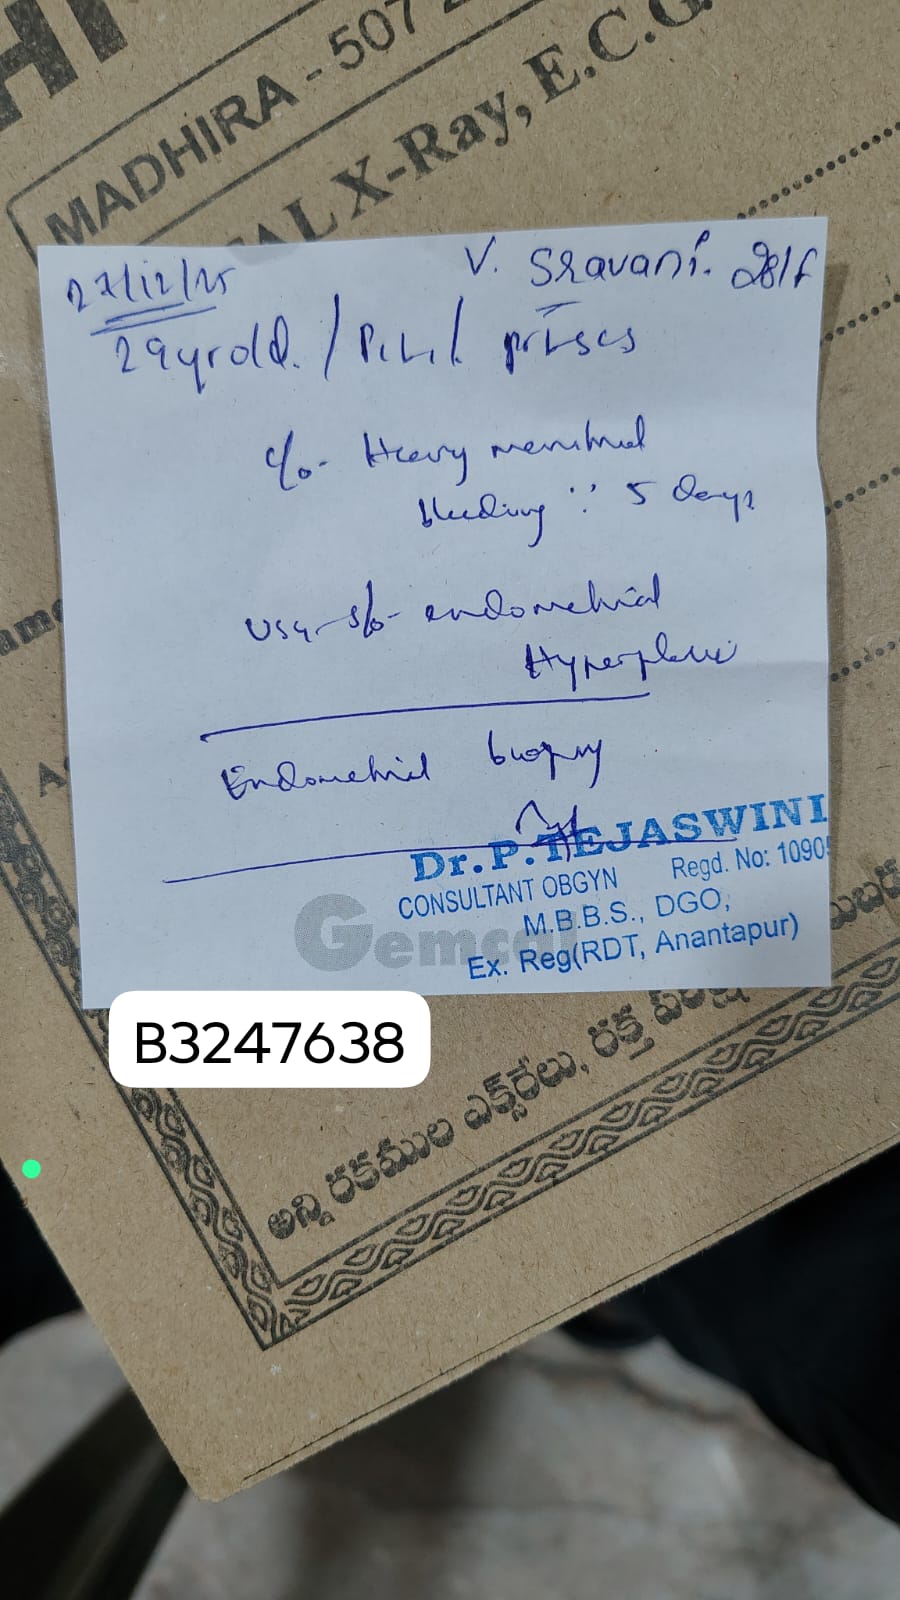 MADHIRA - 507 2
AL X-Ray, E.C.G.
27/12/25
V. Sravani. 28/F
29yrold. / P2L2 / pr LSCS
c/o- Heavy menstrual
bleeding ∵ 5 days
USG- s/o- endometrial
Hyperplasia
Endometrial biopsy
Dr.P.TEJASWINI
CONSULTANT OBGYN Regd. No: 1090
M.B.B.S., DGO,
Ex. Reg(RDT, Anantapur)
Gemcal
B3247638
అన్ని రకముల ఎక్స్‌రేలు, రక్త